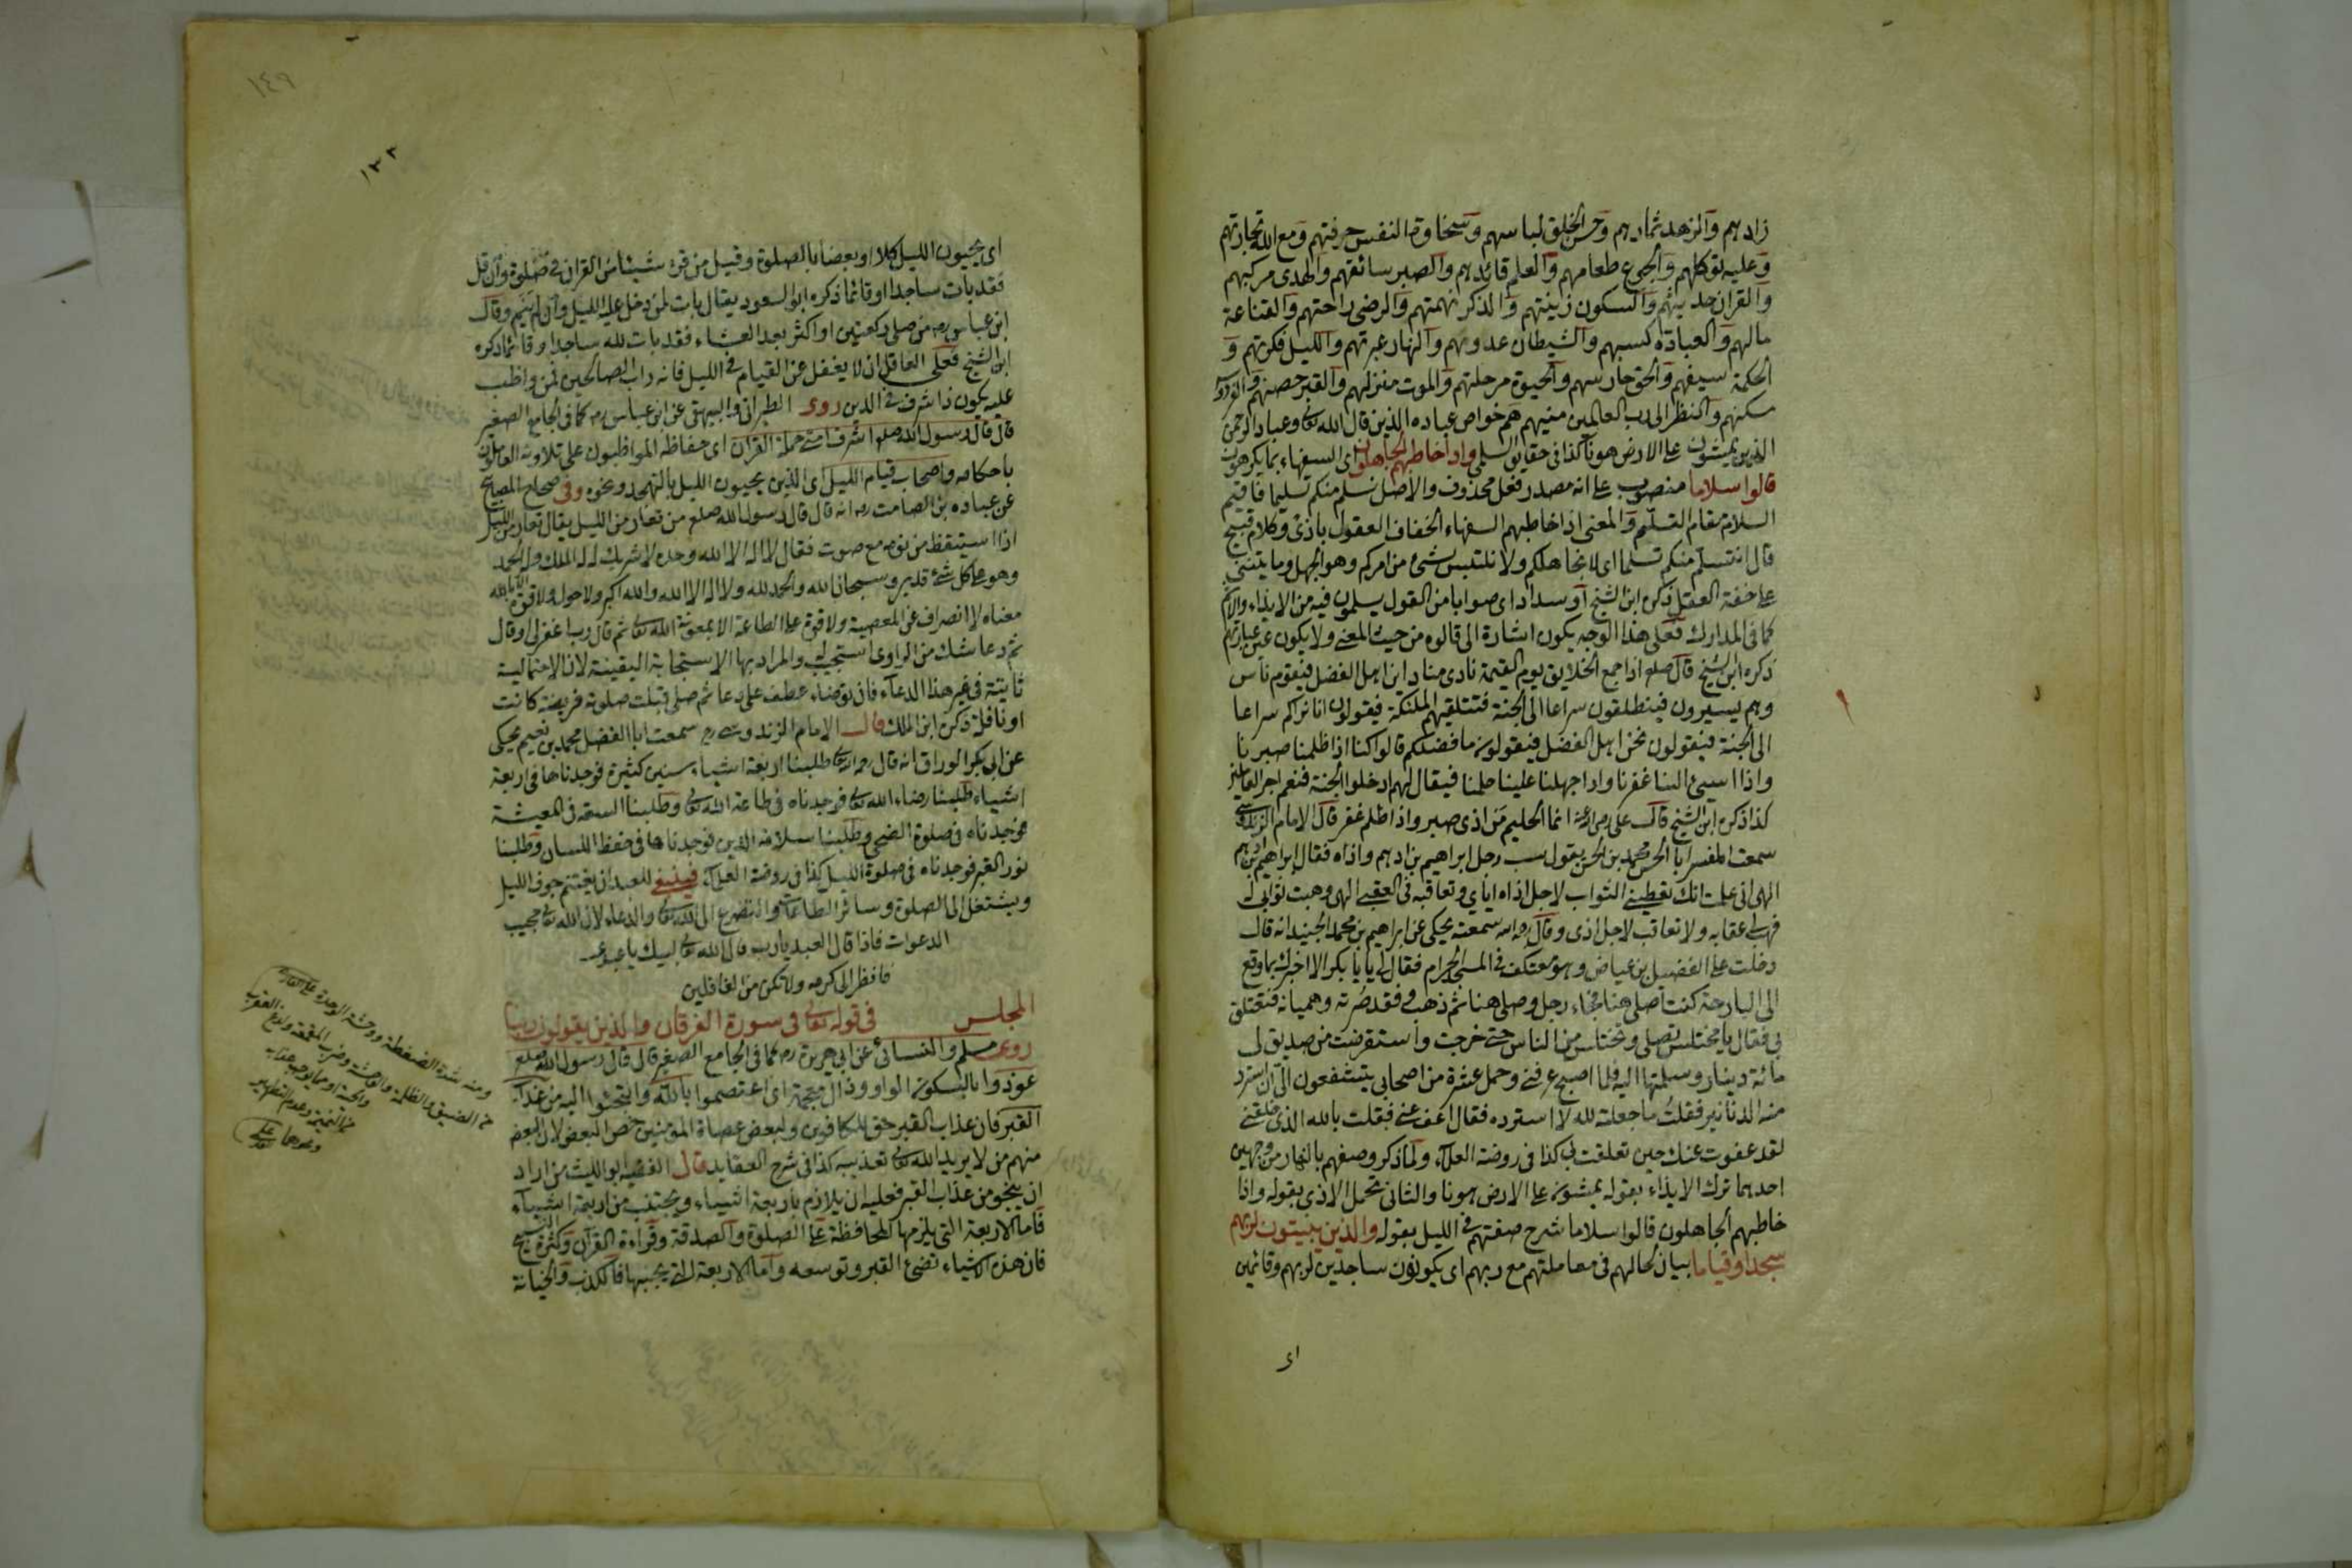 زادهم والزهد ثمارهم وحسن الخلق لباسهم وسخاوة النفس حرفتهم ومع الله تجارتهم
وعليه توكلهم والجوع طعامهم والعلم قائدهم والصبر سائقهم والهدى مركبهم
والقران حديثهم والسكون زينتهم والذكر نهمتهم والرضى راحتهم والقناعة
مالهم والعبادة كسبهم والشيطان عدوهم والنهار عبرتهم والليل فكرتهم و
الحكمة سيفهم والحق حارسهم والحيوة مرحلتهم والموت منزلهم والقبر حصنهم والفردوس
مسكنهم والنظر الى رب العالمين منيهم هم خواص عباده الذين قال الله تعالى وعباد الرحمن
الذين يمشون على الارض هونا كذا في حقايق السلمى واذا خاطبهم الجاهلون اى السفهاء بما يكرهون
قالوا سلاما منصوب على انه مصدر فعل محذوف والاصل نسلم منكم تسليما فاقيم
السلام مقام التسلم والمعنى اذا خاطبهم السفهاء الخفاف العقول باذى وكلام قبيح
قال انتسلم منكم تسلما اى لا نجاهلكم ولا نلتبس بشئ من امركم وهو الجهل وما يبتنى
على خفة العقل ذكره ابن الشيخ او سدادا اى صوابا من القول يسلمون فيه من الايذاء والاثم
كما في المدارك فعلى هذا الوجه يكون اشارة الى قالوه من حيث المعنى ولا يكون عين عبارتهم
ذكره ابن الشيخ قال صلعم اذا جمع الخلايق يوم القيمة نادى مناد اين اهل الفضل فيقوم ناس
وهم يسيرون فينطلقون سراعا الى الجنة فتتلقيهم الملئكة فيقولون انا نراكم سراعا
الى الجنة فيقولون نحن اهل الفضل فيقولون ما فضلكم قالوا كنا اذا ظلمنا صبرنا
واذا اسيئ الينا غفرنا واذا جهلنا علينا حلمنا فيقال لهم ادخلوا الجنة فنعم اجر العاملين
كذا ذكره ابن الشيخ قال على رضى الله عنه انما الحليم من اذى صبر واذا ظلم غفر قال الامام الزندوستى
سمعت المفسر ابا الحسن محمد بن الحسن يقول سب رجل ابراهيم بن ادهم واذاه فقال ابراهيم بن ادهم
الهى انى علمت انك تعطينى الثواب لاجل اذاه اياي وتعاقبه في العقبى الهى وهبت ثوابى لك
فهب لى عقابه ولا تعاقب لاجل اذى وقال رحمه الله سمعته يحكى عن ابراهيم بن محمد الجنيد انه قال
دخلت على الفضيل بن عياض وهو معتكف في المسجد الحرام فقال لى يا ابا بكر الا اخبرك بما وقع
الى البارحة كنت اصلى هنا فجاء رجل وصلى هنا ثم ذهب وفقد صرته وهميانه فتعلق
بى فقال يا مختلس تصلى وتختلس من الناس حتى خرجت واستقرضت من صديق لى
مائة دينار وسلمتها اليه فلما اصبح عرفنى وحمل عشرة من اصحابى يتشفعون الى ان استرد
منه الدنانير فقلت ما جعلته لله لا استرده فقال اعف عنى فقلت بالله الذى خلقنى
لقد عفوت عنك حين تعلقت بى كذا في روضة العلماء ولما ذكر وصفهم بالنهار من وجهين
احدهما ترك الايذاء بقوله يمشون على الارض هونا والثانى تحمل الاذى بقوله واذا
خاطبهم الجاهلون قالوا سلاما شرح صفتهم في الليل بقوله والذين يبيتون لربهم
سجدا وقياما بيان لحالهم في معاملتهم مع ربهم اى يكونون ساجدين لربهم وقائمين
اى
١٤٩
١٣٣
اى يحييون الليل كلا او بعضا بالصلوة وقيل من قرء شيئا من القران في صلوة وان قل
فقد بات ساجدا او قائما ذكره ابو السعود يقال بات لمن دخل عليه الليل وان لم ينم وقال
ابن عباس رضه من صلى ركعتين او اكثر بعد العشاء فقد بات لله ساجدا وقائما ذكره
ابن الشيخ فعلى العاقل ان لا يغفل عن القيام في الليل فانه داب الصالحين فمن واظب
عليه يكون ذا شرف في الدين روى الطبرانى والبيهقى عن ابن عباس رضه كما في الجامع الصغير
قال قال رسول الله صلعم اشرف امتى حملة القران اى حفاظه المواظبون على تلاوته العاملون
باحكامه واصحاب قيام الليل اى الذين يحييون الليل بالتهجد ونحوه وفى صحاح المصابيح
عن عبادة بن الصامت رضه انه قال قال رسول الله صلعم من تعار من الليل يقال تعار من الليل
اذا استيقظ من نومه مع صوت فقال لا اله الا الله وحده لا شريك له له الملك وله الحمد
وهو على كل شئ قدير وسبحان الله والحمد لله ولا اله الا الله والله اكبر ولا حول ولا قوة الا بالله
معناه لا انصراف عن المعصية ولا قوة على الطاعة الا بمعونة الله تعالى ثم قال رب اغفرلى او قال
ثم دعا شك من الراوى استجيب له والمراد بها الاستجابة اليقينة لان الاحتمالية
ثابتة في غير هذا الدعاء فان توضاء عطف على دعا ثم صلى قبلت صلوته فريضة كانت
او نافلة ذكره ابن الملك قال الامام الزندوستى رح سمعت ابا الفضل محمد بن نعيم يحكى
عن ابى بكر الوراق انه قال رحمه الله تعالى طلبنا اربعة اشياء سنين كثيرة فوجدناها في اربعة
اشياء طلبنا رضاء الله تعالى فوجدناه في طاعة الله تعالى وطلبنا السعة في المعيشة
فوجدناه في صلوة الضحى وطلبنا سلامة الدين فوجدناها في حفظ اللسان وطلبنا
نور القبر فوجدناه في صلوة الليل كذا في روضة العلماء فينبغى للعبد ان يغتنم جوف الليل
ويشتغل الى الصلوة وسائر الطاعات والتضرع الى الله تعالى والدعاء لان الله تعالى مجيب
الدعوات فاذا قال العبد يا رب قال الله تعالى لبيك يا عبدى
فانظر الى كرمه ولا تكن من الغافلين
المجلس في قوله تعالى في سورة الفرقان والذين يقولون ربنا
روى مسلم والنسائى عن ابى هريرة رضه كما في الجامع الصغير قال قال رسول الله صلعم
عوذوا بالسكون الواو وذال معجمة اى اعتصموا بالله والتجئوا اليه من عذاب
القبر فان عذاب القبر حق للكافرين ولبعض عصاة المؤمنين خص البعض لان البعض
منهم من لا يريد الله تعالى تعذيبه كذا في شرح العقايد قال الفقيه ابو الليث من اراد
ان ينجو من عذاب القبر فعليه ان يلازم باربعة اشياء ويجتنب من اربعة اشياء
فاما الاربعة التى يلزمها المحافظة على الصلوة والصدقة وقراءة القرآن وكثرة التسبيح
فان هذه الاشياء تضئ القبر وتوسعه واما الاربعة التى يجتنبها فالكذب والخيانة
ومنه شدة الضغطة ووحشة الوحدة
ثم الضيق والظلمة والوحشة وضرب المقمعة ولدغ العقرب